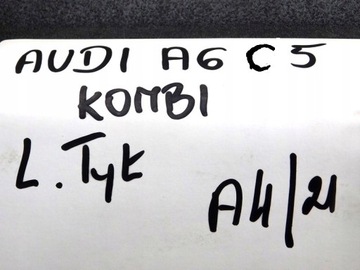 AUDI A6 C5
KOMBI
L. Tyt
A4/21